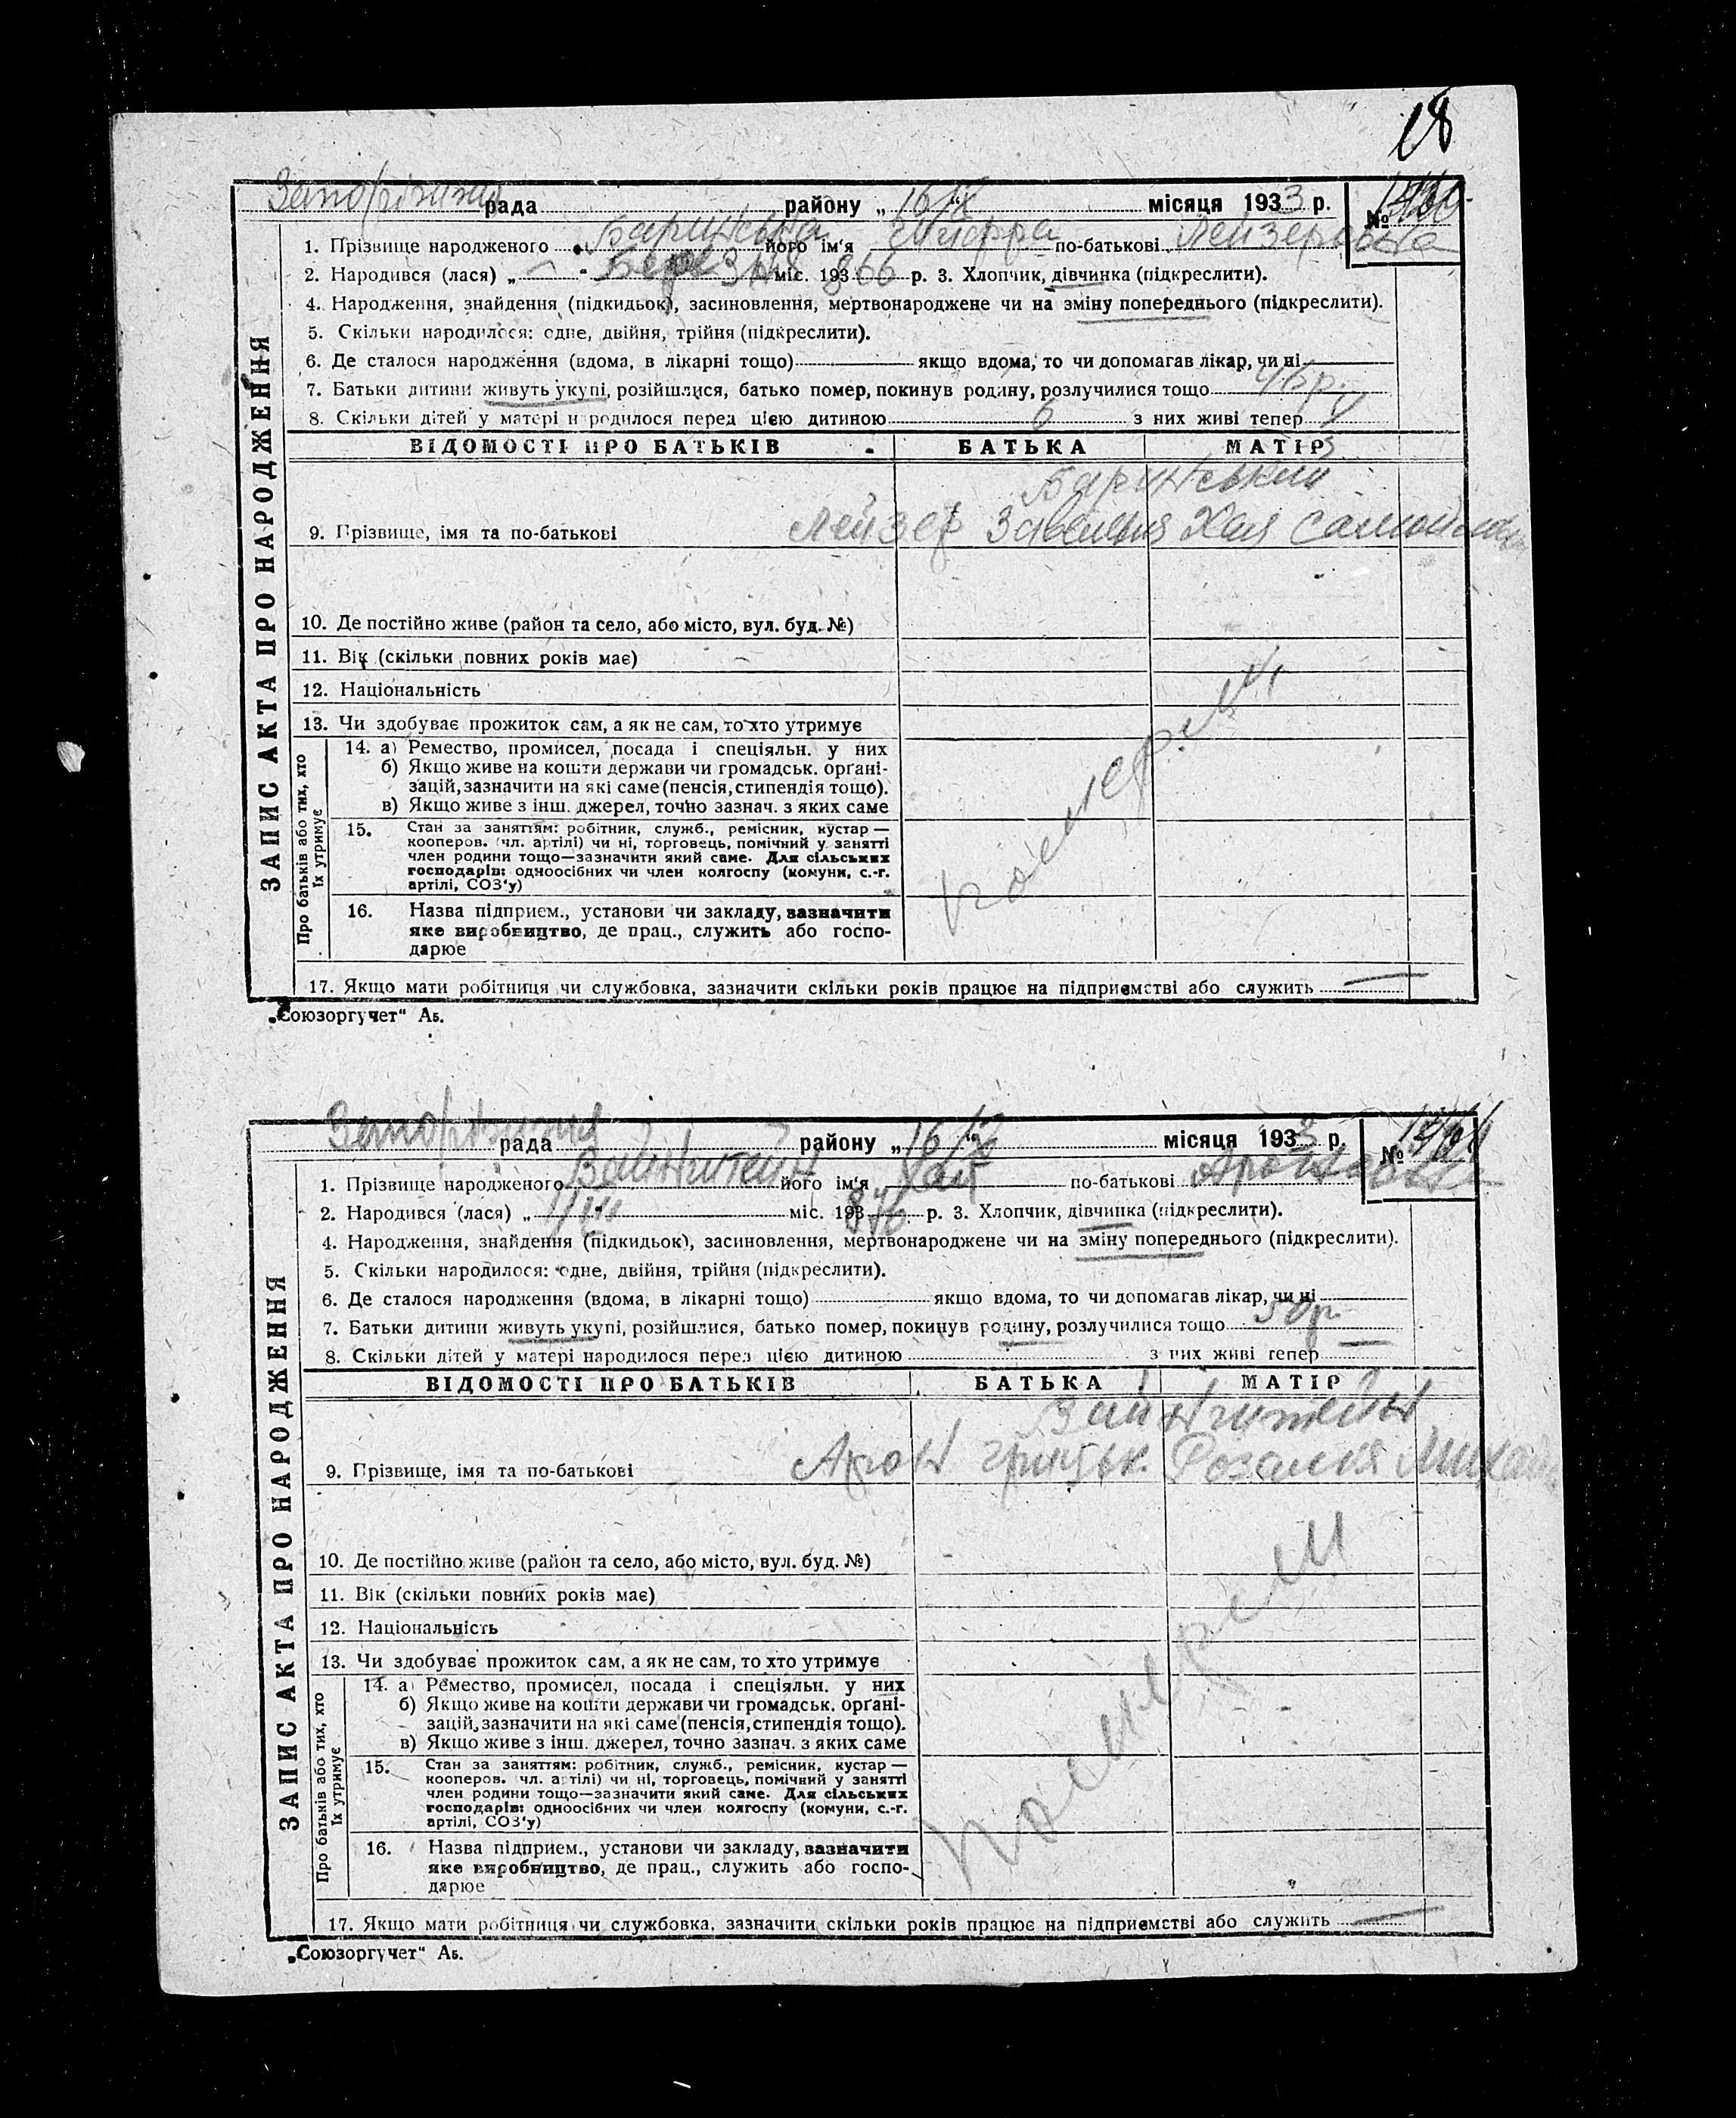 18
Запоріжжя рада району „16/IX“ місяця 1933 р. №
1. Прізвище народженого Баринська його ім'я по-батькові Лейзеровна
2. Народився (лася) „ — “ міс. 193 866 р. 3. Хлопчик, дівчинка (підкреслити).
4. Народження, знайдення (підкидьок), засиновлення, мертвонароджене чи на зміну попереднього (підкреслити).
5. Скільки народилося: одне, двійня, трійня (підкреслити).
6. Де сталося народження (вдома, в лікарні тощо) — якщо вдома, то чи допомагав лікар, чи ні —
7. Батьки дитини живуть укупі, розійшлися, батько помер, покинув родину, розлучилися тощо 46 р.
8. Скільки дітей у матері народилося перед цією дитиною 6 з них живі тепер
ВІДОМОСТІ ПРО БАТЬКІВ БАТЬКА МАТІР
Баринський
9. Прізвище, імя та по-батькові Лейзер Хая Самойловна
10. Де постійно живе (район та село, або місто, вул. буд. №)
11. Вік (скільки повних років має)
12. Національність
13. Чи здобуває прожиток сам, а як не сам, то хто утримує
14. а) Ремество, промисел, посада і спеціяльн. у них
б) Якщо живе на кошти держави чи громадськ. органі-
зацій, зазначити на які саме (пенсія, стипендія тощо).
в) Якщо живе з інш. джерел, точно зазнач. з яких саме
15. Стан за заняттям: робітник, служб., ремісник, кустар —
кооперов. (чл. артілі) чи ні, торговець, помічний у занятті
член родини тощо—зазначити який саме. Для сільських
господарів: одноосібних чи член колгоспу (комуни, с.-г.
артілі, СОЗ'у)
16. Назва підприєм., установи чи закладу, зазначити
яке виробництво, де прац., служить або госпо-
дарює
померли
17. Якщо мати робітниця чи службовка, зазначити скільки років працює на підприємстві або служить —
ЗАПИС АКТА ПРО НАРОДЖЕННЯ
Про батьків або тих, хто
їх утримує
„Союзоргучет“ Аб.
Запоріжжя рада району „16/IX“ місяця 1933 р. №
1. Прізвище народженого Вайнштейн його ім'я Хая по-батькові Ароновна
2. Народився (лася) „ “ міс. 193 876 р. 3. Хлопчик, дівчинка (підкреслити).
4. Народження, знайдення (підкидьок), засиновлення, мертвонароджене чи на зміну попереднього (підкреслити).
5. Скільки народилося: одне, двійня, трійня (підкреслити).
6. Де сталося народження (вдома, в лікарні тощо) якщо вдома, то чи допомагав лікар, чи ні —
7. Батьки дитини живуть укупі, розійшлися, батько помер, покинув родину, розлучилися тощо 50 р.
8. Скільки дітей у матері народилося перед цією дитиною — з них живі тепер —
ВІДОМОСТІ ПРО БАТЬКІВ БАТЬКА МАТІР
Вайнштейн
9. Прізвище, імя та по-батькові Арон Розалія Михайл
10. Де постійно живе (район та село, або місто, вул. буд. №)
11. Вік (скільки повних років має)
12. Національність
13. Чи здобуває прожиток сам, а як не сам, то хто утримує
14. а) Ремество, промисел, посада і спеціяльн. у них
б) Якщо живе на кошти держави чи громадськ. органі-
зацій, зазначити на які саме (пенсія, стипендія тощо).
в) Якщо живе з інш. джерел, точно зазнач. з яких саме
15. Стан за заняттям: робітник, служб., ремісник, кустар —
кооперов. чл. артілі) чи ні, торговець, помічний у занятті
член родини тощо—зазначити який саме. Для сільських
господарів: одноосібних чи член колгоспу (комуни, с.-г.
артілі, СОЗ'у)
16. Назва підприєм., установи чи закладу, зазначити
яке виробництво, де прац., служить або госпо-
дарює
померли
17. Якщо мати робітниця чи службовка, зазначити скільки років працює на підприємстві або служить —
ЗАПИС АКТА ПРО НАРОДЖЕННЯ
Про батьків або тих, хто
їх утримує
„Союзоргучет“ Аб.